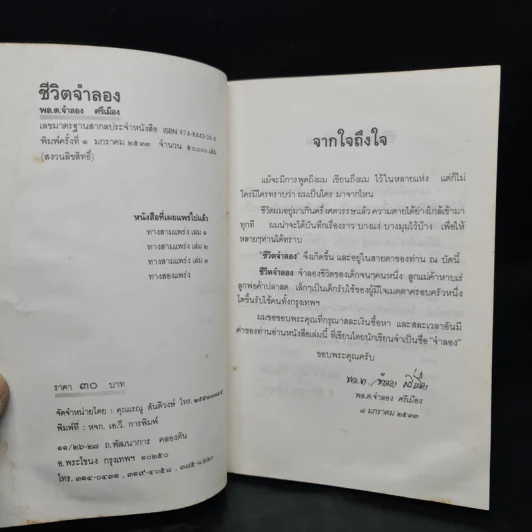 ชีวิตจำลอง
พล.ต.จำลอง ศรีเมือง
เลขมาตรฐานสากลประจำหนังสือ ISBN 974-8443-23-
พิมพ์ครั้งที่ ๑ มกราคม ๒๕๓๓ จำนวน ๕๐,๐๐๐ เล่ม
(สงวนลิขสิทธิ์)
หนังสือที่เผยแพร่ไปแล้ว
ทางสามแพร่ง เล่ม ๑
ทางสามแพร่ง เล่ม ๒
ทางสามแพร่ง เล่ม ๓
ทางสองแพร่ง
ราคา ๓๐ บาท
จัดจำหน่ายโดย : คุณเรณู สันติวงษ์ โทร.
พิมพ์ที่ : หจก. เอ.วี. การพิมพ์
๑๑/๒๖-๒๘ ถ.พัฒนาการ คลองตัน
อ.พระโขนง กรุงเทพฯ ๑๐๒๕๐
โทร. ๓๑๔-๐๔๓๑, ๓๑๙-๔๐๕๘,
จากใจถึงใจ
แม้จะมีการพูดถึงผม เขียนถึงผม ไว้ในหลายแห่ง แต่ก็ไม่
ใคร่มีใครทราบว่า ผมเป็นใคร มาจากไหน
ชีวิตผมอยู่มาเกินครึ่งศตวรรษแล้ว ความตายได้ย่างใกล้เข้ามา
ทุกที ผมน่าจะได้บันทึกเรื่องราว บางแง่ บางมุมไว้บ้าง เพื่อให้
หลายๆท่านได้ทราบ
"ชีวิตจำลอง" จึงเกิดขึ้น และอยู่ในสายตาของท่าน ณ บัดนี้
ชีวิตจำลอง จำลองชีวิตของเด็กจนๆคนหนึ่ง ลูกแม่ค้าหาบเร่
ลูกพ่อค้าปลาสด เล็กๆเป็นเด็กรับใช้ของผู้มีใจเมตตาครอบครัวหนึ่ง
โตขึ้นรับใช้คนทั้งกรุงเทพฯ
ผมขอขอบพระคุณที่กรุณาสละเงินซื้อหา และสละเวลาอันมี
ค่าของท่านอ่านหนังสือเล่มนี้ ที่เขียนโดยนักเขียนจำเป็นชื่อ "จำลอง"
ขอบพระคุณครับ
พล.ต. จำลอง ศรีเมือง
พล.ต.จำลอง ศรีเมือง
๘ มกราคม ๒๕๓๓